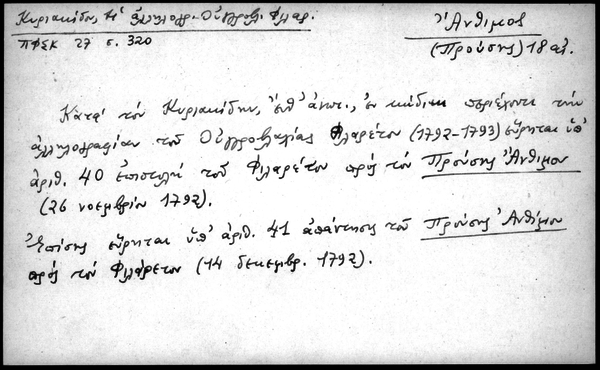 Κυριακίδου, Ἡ ἀλληλογρ. Οὑγγροβλ. Φιλαρ.
ΠΦΣΚ 27 σ. 320
Ἄνθιμος
(Προύσης) 18 αἰ.
Κατὰ τὸν Κυριακίδην, ἔνθ' ἀνωτ., ἐν κώδικι περιέχοντι τὴν
ἀλληλογραφίαν τοῦ Οὑγγροβλαχίας Φιλαρέτου (1792-1793) εὕρηται ὑπ'
ἀριθ. 40 ἐπιστολὴ τοῦ Φιλαρέτου πρὸς τὸν Προύσης Ἄνθιμον
(26 νοεμβρίου 1792).
Ἐπίσης εὕρηται ὑπ' ἀριθ. 41 ἀπάντησις τοῦ Προύσης Ἀνθίμου
πρὸς τὸν Φιλάρετον (14 δεκεμβρ. 1792).